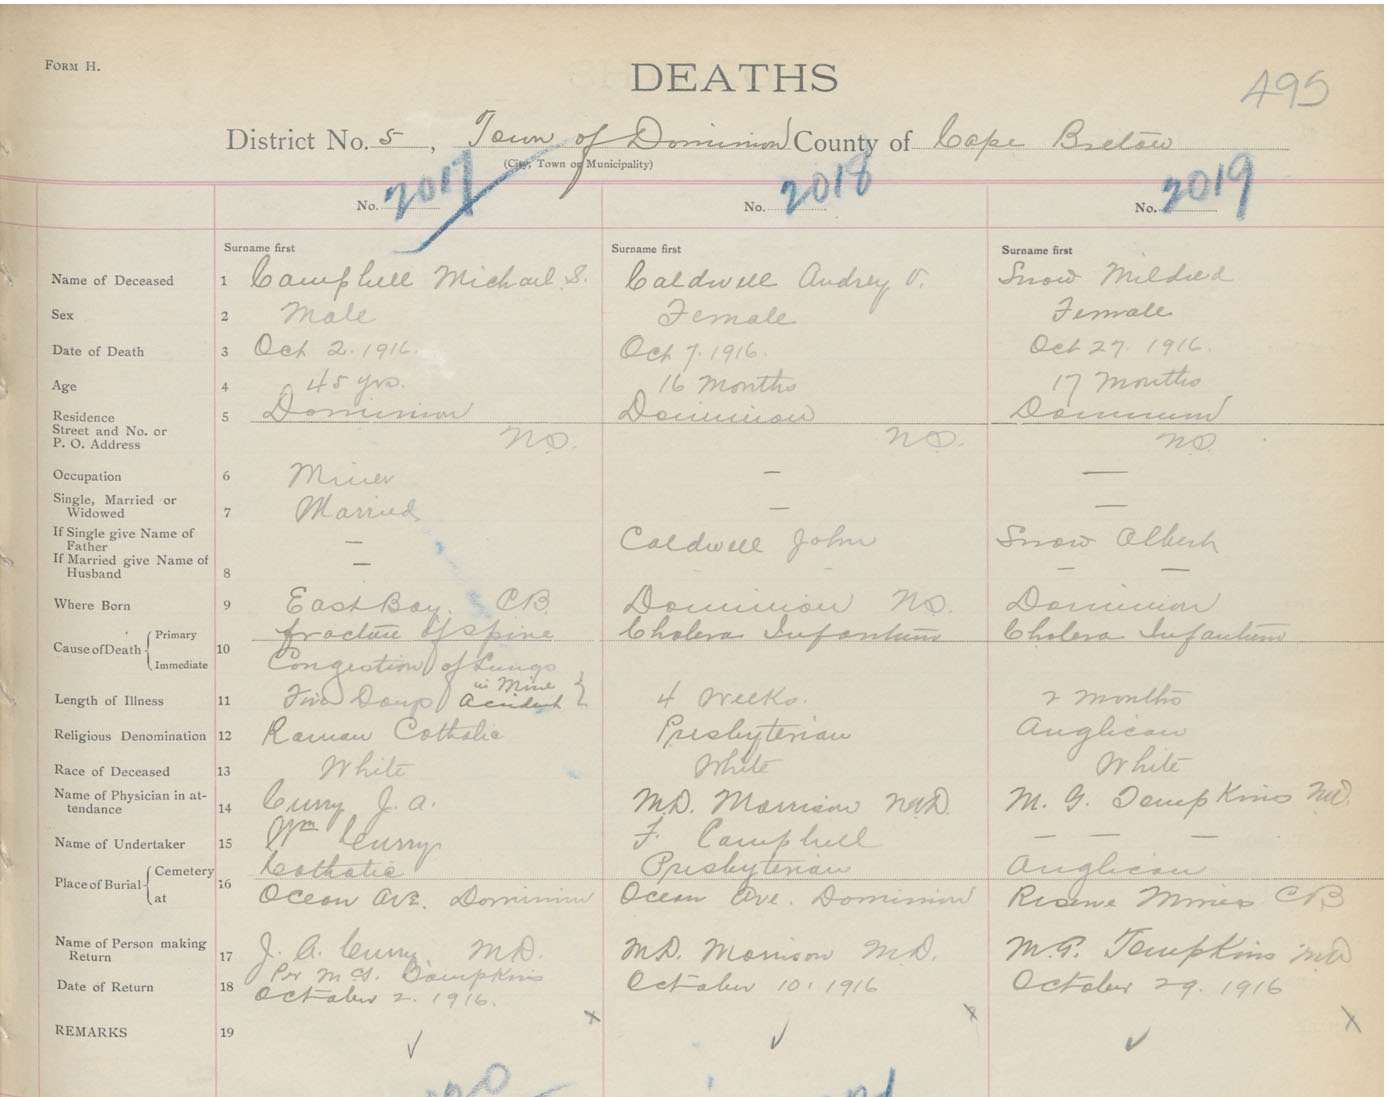 FORM H.
DEATHS
495
District No. 5, Town of Dominion County of Cape Breton
(City, Town or Municipality)
No. 2017 No. 2018 No. 2019
Surname first Surname first Surname first
Name of Deceased 1 Campbell Michael S. Caldwell Audrey V. Snow Mildred
Sex 2 Male Female Female
Date of Death 3 Oct 2. 1916. Oct 7. 1916. Oct 27. 1916.
Age 4 45 yrs. 16 Months 17 Months
Residence 5 Dominion Dominion Dominion
Street and No. or
P. O. Address NS. NS. NS.
Occupation 6 Miner — —
Single, Married or
Widowed 7 Married — —
If Single give Name of
Father — Caldwell John Snow Albert
If Married give Name of
Husband 8 — — — —
Where Born 9 East Bay. CB. Dominion NS. Dominion
Cause of Death Primary fracture of spine Cholera Infantum Cholera Infantum
10
Immediate Congestion of Lungs
Length of Illness 11 Five Days in Mine Acident 4 Weeks. 2 months
Religious Denomination 12 Roman Catholic Presbyterian Anglican
Race of Deceased 13 White White White
Name of Physician in at-
tendance 14 Curry J. A. M.D. Morrison M.D. M. G. Tompkins MD.
Name of Undertaker 15 Wm Curry F. Campbell — — —
Place of Burial Cemetery Catholic Presbyterian Anglican
16
at Ocean Ave. Dominion Ocean Ave. Dominion Reserve Mines CB
Name of Person making
Return 17 J. A. Curry M.D. M.D. Morrison M.D. M.G. Tompkins MD
Per M.G. Tompkins
Date of Return 18 October 2. 1916. October 10. 1916 October 29. 1916
REMARKS 19